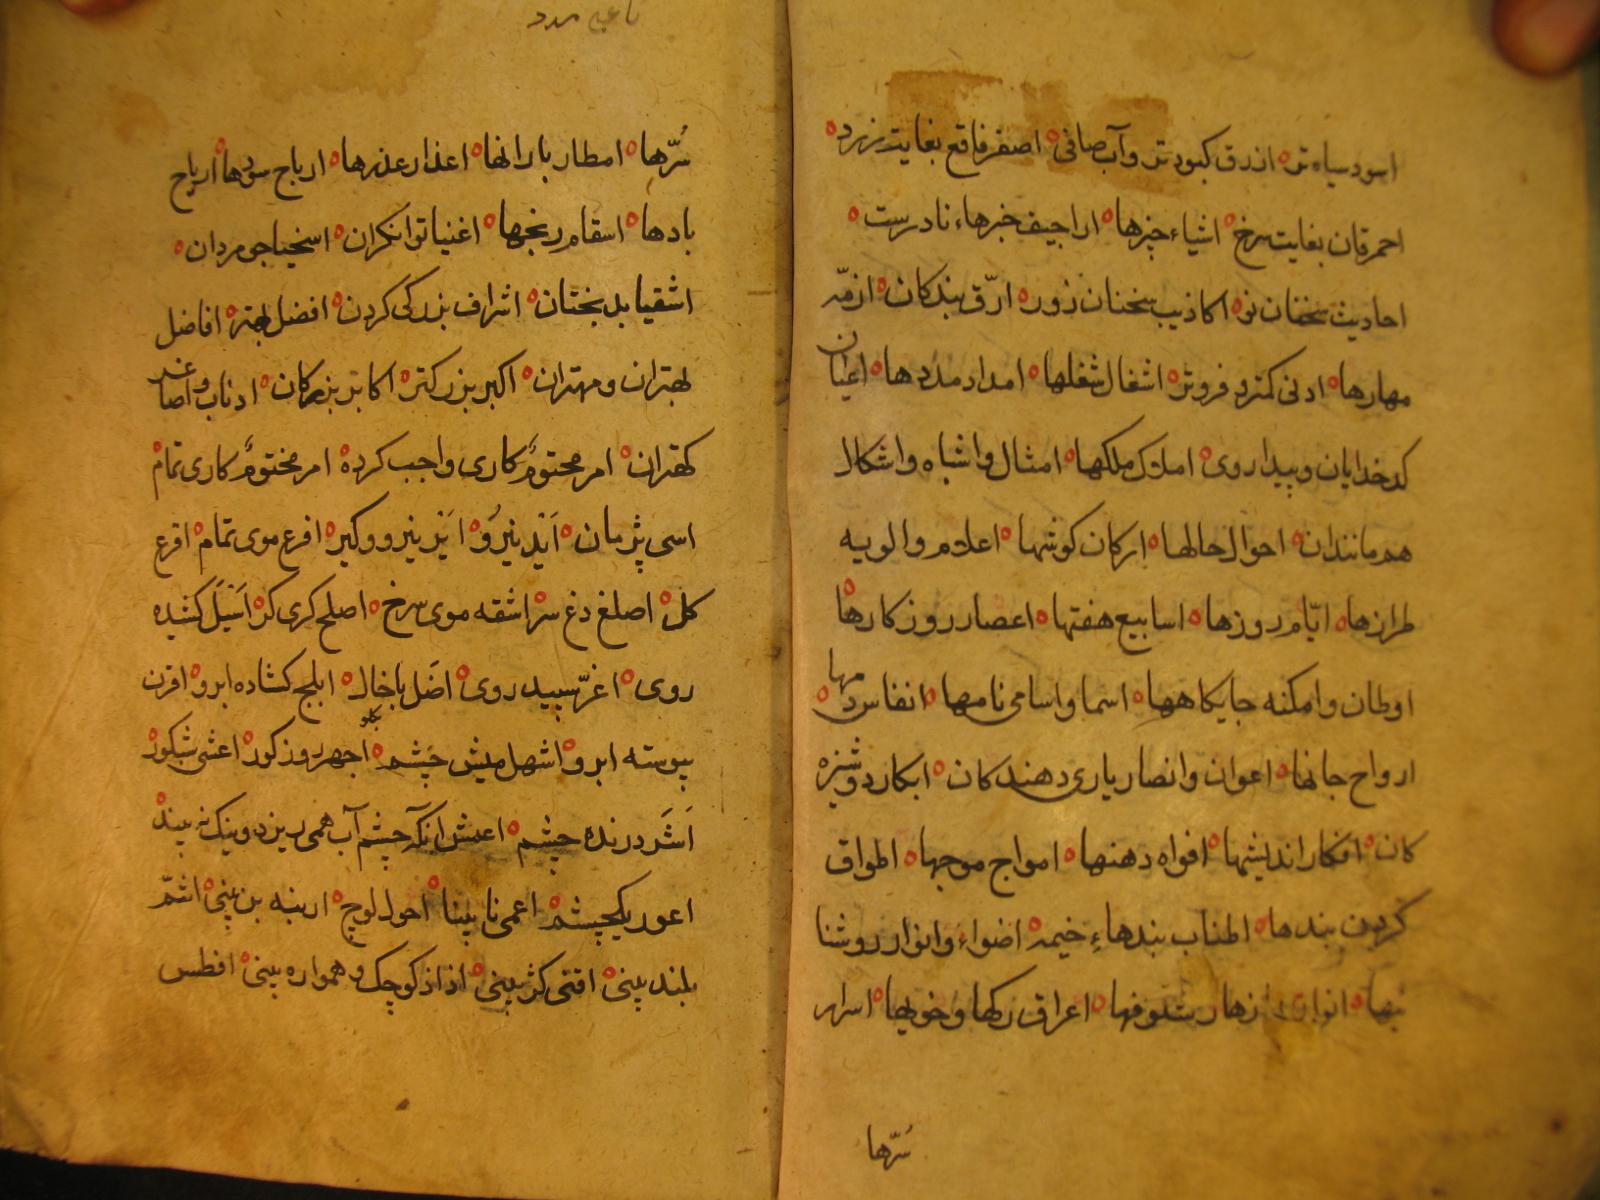 اسود سیاه تر ازرق کبودتر و آب صافی اصفر فاقع بغایت زرد
احمر قان بغایت سرخ اشیاء چیزها اراجیف خبرهاء نادرست
احادیث سخنان نو اکاذیب سخنان زور ارقّ بندکان ازمّه
مهارها ادنی کمتر و فروتر اشغال شغلها امداد مددها اعیان
کدخدایان و پیدا روی املاک ملکها امثال و اشباه و اشکال
هم مانندان احوال حالها ارکان کوشها اعلام و الویه
طرازها ایّام روزها اسابیع هفتها اعصار روزکارها
اوطان و امکنه جایکاهها اسما و اسامی نامها انفاس دمها
ارواح جانها اعوان و انصار یاری دهندکان ابکار دوشیزه
کان افکار اندیشها افواه دهنها امواج موجها اطواق
کردن بندها اطناب بندهاء خیمه اضواء و انوار روشنا
ییها انوار ازهار شکوفها اعراق رکها و خویها اسرار
سُرّها
سُرّها امطار بارانها اعذار عذرها ارباح سودها ارياح
بادها اسقام رنجها اغنیا توانکران اسخیا جومردان
اشقیا بدبختان اشراف بزرکی کردن افضل بهتر افاضل
بهتران و مهتران اکبر بزرکتر اکابر بزرکان اذناب و اصاغر
کهتران امر محتومٌ کاری واجب کرده امر مختومٌ کاری تمام
اسی پژمان اَیْد نیرُو اَیّد نیرو و کیر افرع موی تمام اقرع
کل اصلع دغ سر اشقه موی سرخ اصلح کری کر اَسَیل کشیده
روی اغرّ سپید روی اَضَل باخال ابلج کشاده ابرو اقرن
پیوسته ابرو اشهل میش چَشم اجهر روز کور اعشی شبکور
اَشتَر درنده چشم اعمش انکه چشم آب همی ریزد و نیک نه بیند
اعور یکچشم اعمی نابینا احول لوچ ارنبه بن بینی اشمّ
بلند بینی اقنی کژ بینی اذاذ کوچک و همواره بینی افطس